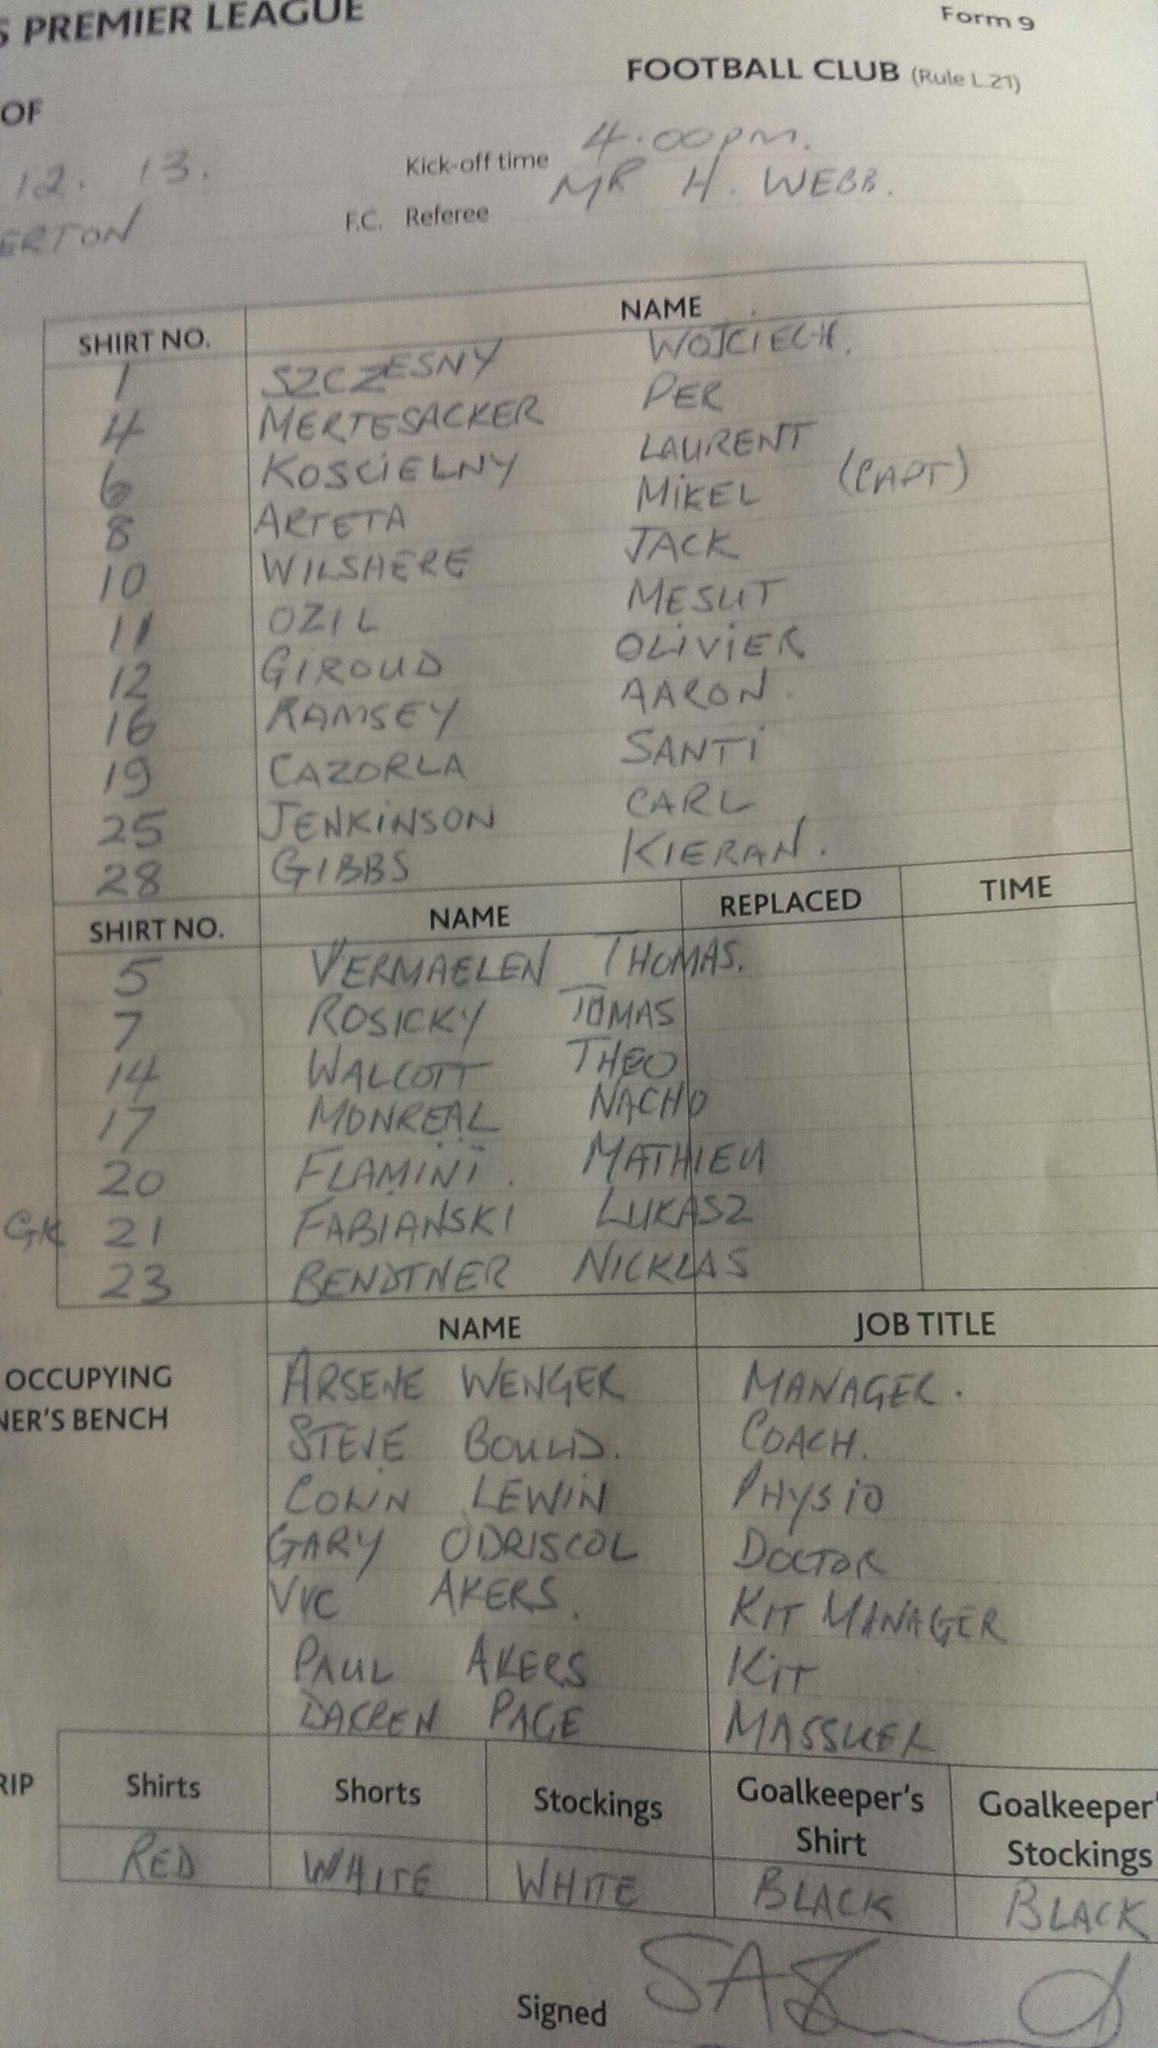 S PREMIER LEAGUE Form 9
FOOTBALL CLUB (Rule L.21)
OF
12. 13. Kick-off time 4.00pm.
ERTON F.C. Referee MR H. WEBB.
SHIRT NO. NAME
1 SZCZESNY WOJCIECH.
4 MERTESACKER PER
6 KOSCIELNY LAURENT
8 ARTETA MIKEL (CAPT)
10 WILSHERE JACK
11 OZIL MESUT
12 GIROUD OLIVIER
16 RAMSEY AARON.
19 CAZORLA SANTI
25 JENKINSON CARL
28 GIBBS KIERAN.
SHIRT NO. NAME REPLACED TIME
5 VERMAELEN THOMAS.
7 ROSICKY TOMAS
14 WALCOTT THEO
17 MONREAL NACHO
20 FLAMINI. MATHIEU
GK 21 FABIANSKI LUKASZ
23 BENDTNER NICKLAS
NAME JOB TITLE
OCCUPYING ARSENE WENGER MANAGER.
NER'S BENCH STEVE BOULD. COACH.
COLIN LEWIN PHYSIO
GARY ODRISCOL DOCTOR
VIC AKERS. KIT MANAGER
PAUL AKERS KIT
DARREN PAGE MASSUER
RIP Shirts Shorts Stockings Goalkeeper's Shirt Goalkeeper' Stockings
RED WHITE WHITE BLACK BLACK
Signed